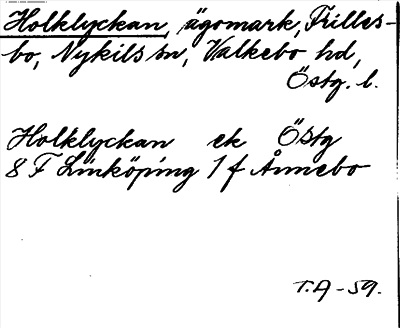 Holklyckan, ägomark, Frilles-
bo, Nykils sn, Valkebo hd,
Östg. l.
Holklyckan ek Östg
8 F Linköping 1 f Ånnebo
T.A -59.